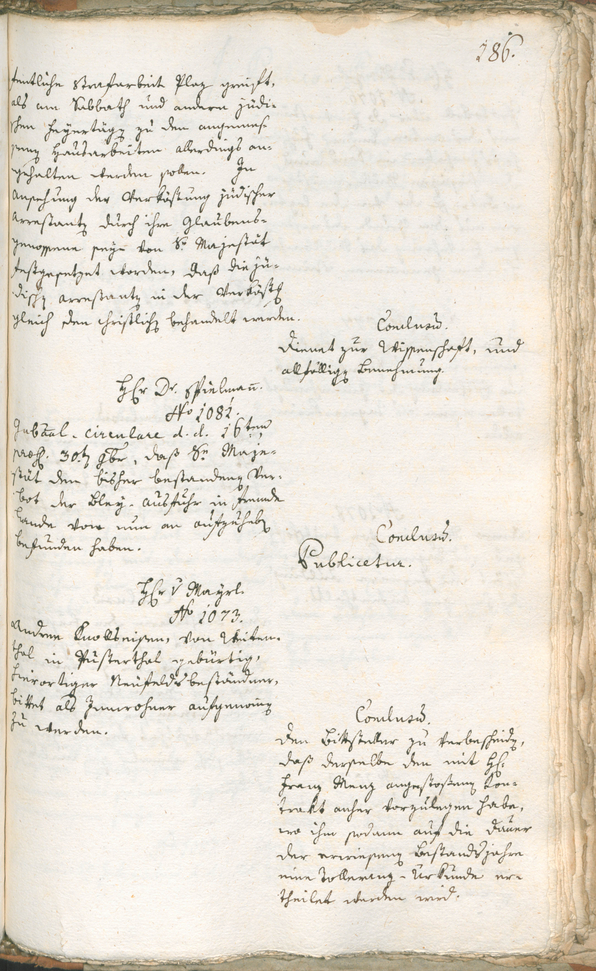 186.
fentliche Strafarbeit Plaz greift,
als am Sabbath und andern jüdi-
schen Feyertägen zu den angemes-
senen Hausarbeiten allerdings an-
gehalten werden sollen. In
Ansehung der Verköstung jüdischer
Arrestanten durch ihre Glaubens-
genossene seye von Sr Majestät
festgesetzet worden, daß die jü-
dischen Arrestanten in der Verköstung
gleich den christlichen behandelt werden.
Conclusum.
Dienet zur Wissenschaft, und
allfälligen Benehmung.
Hr Dr. Spielmann.
No 1081.
Gubernial-circulare d. d. 16ten
præs. 30ten 9br, daß Se Maje-
stät den bisher bestandenen Ver-
bot der Bley-Ausfuhr in fremde
Lande von nun an aufzuheben
befunden haben.
Conclusum.
Publicetur.
Hr v Mayrl.
No 1073.
Andree Knollseisen, von Weiten-
thal in Pusterthal gebürtig,
hierortiger Neufelds beständner,
bittet als Innwohner aufgenommen
zu werden.
Conclusum.
Den Bittsteller zu verbescheiden,
daß derselbe den mit Hr
Franz Menz angestossenen Kon-
trakt anher vorzulegen habe,
wo ihm sodann auf die Dauer
der erwiesenen Bestandsjahre
eine Tollerung-Urkunde er-
theilet werden wird.